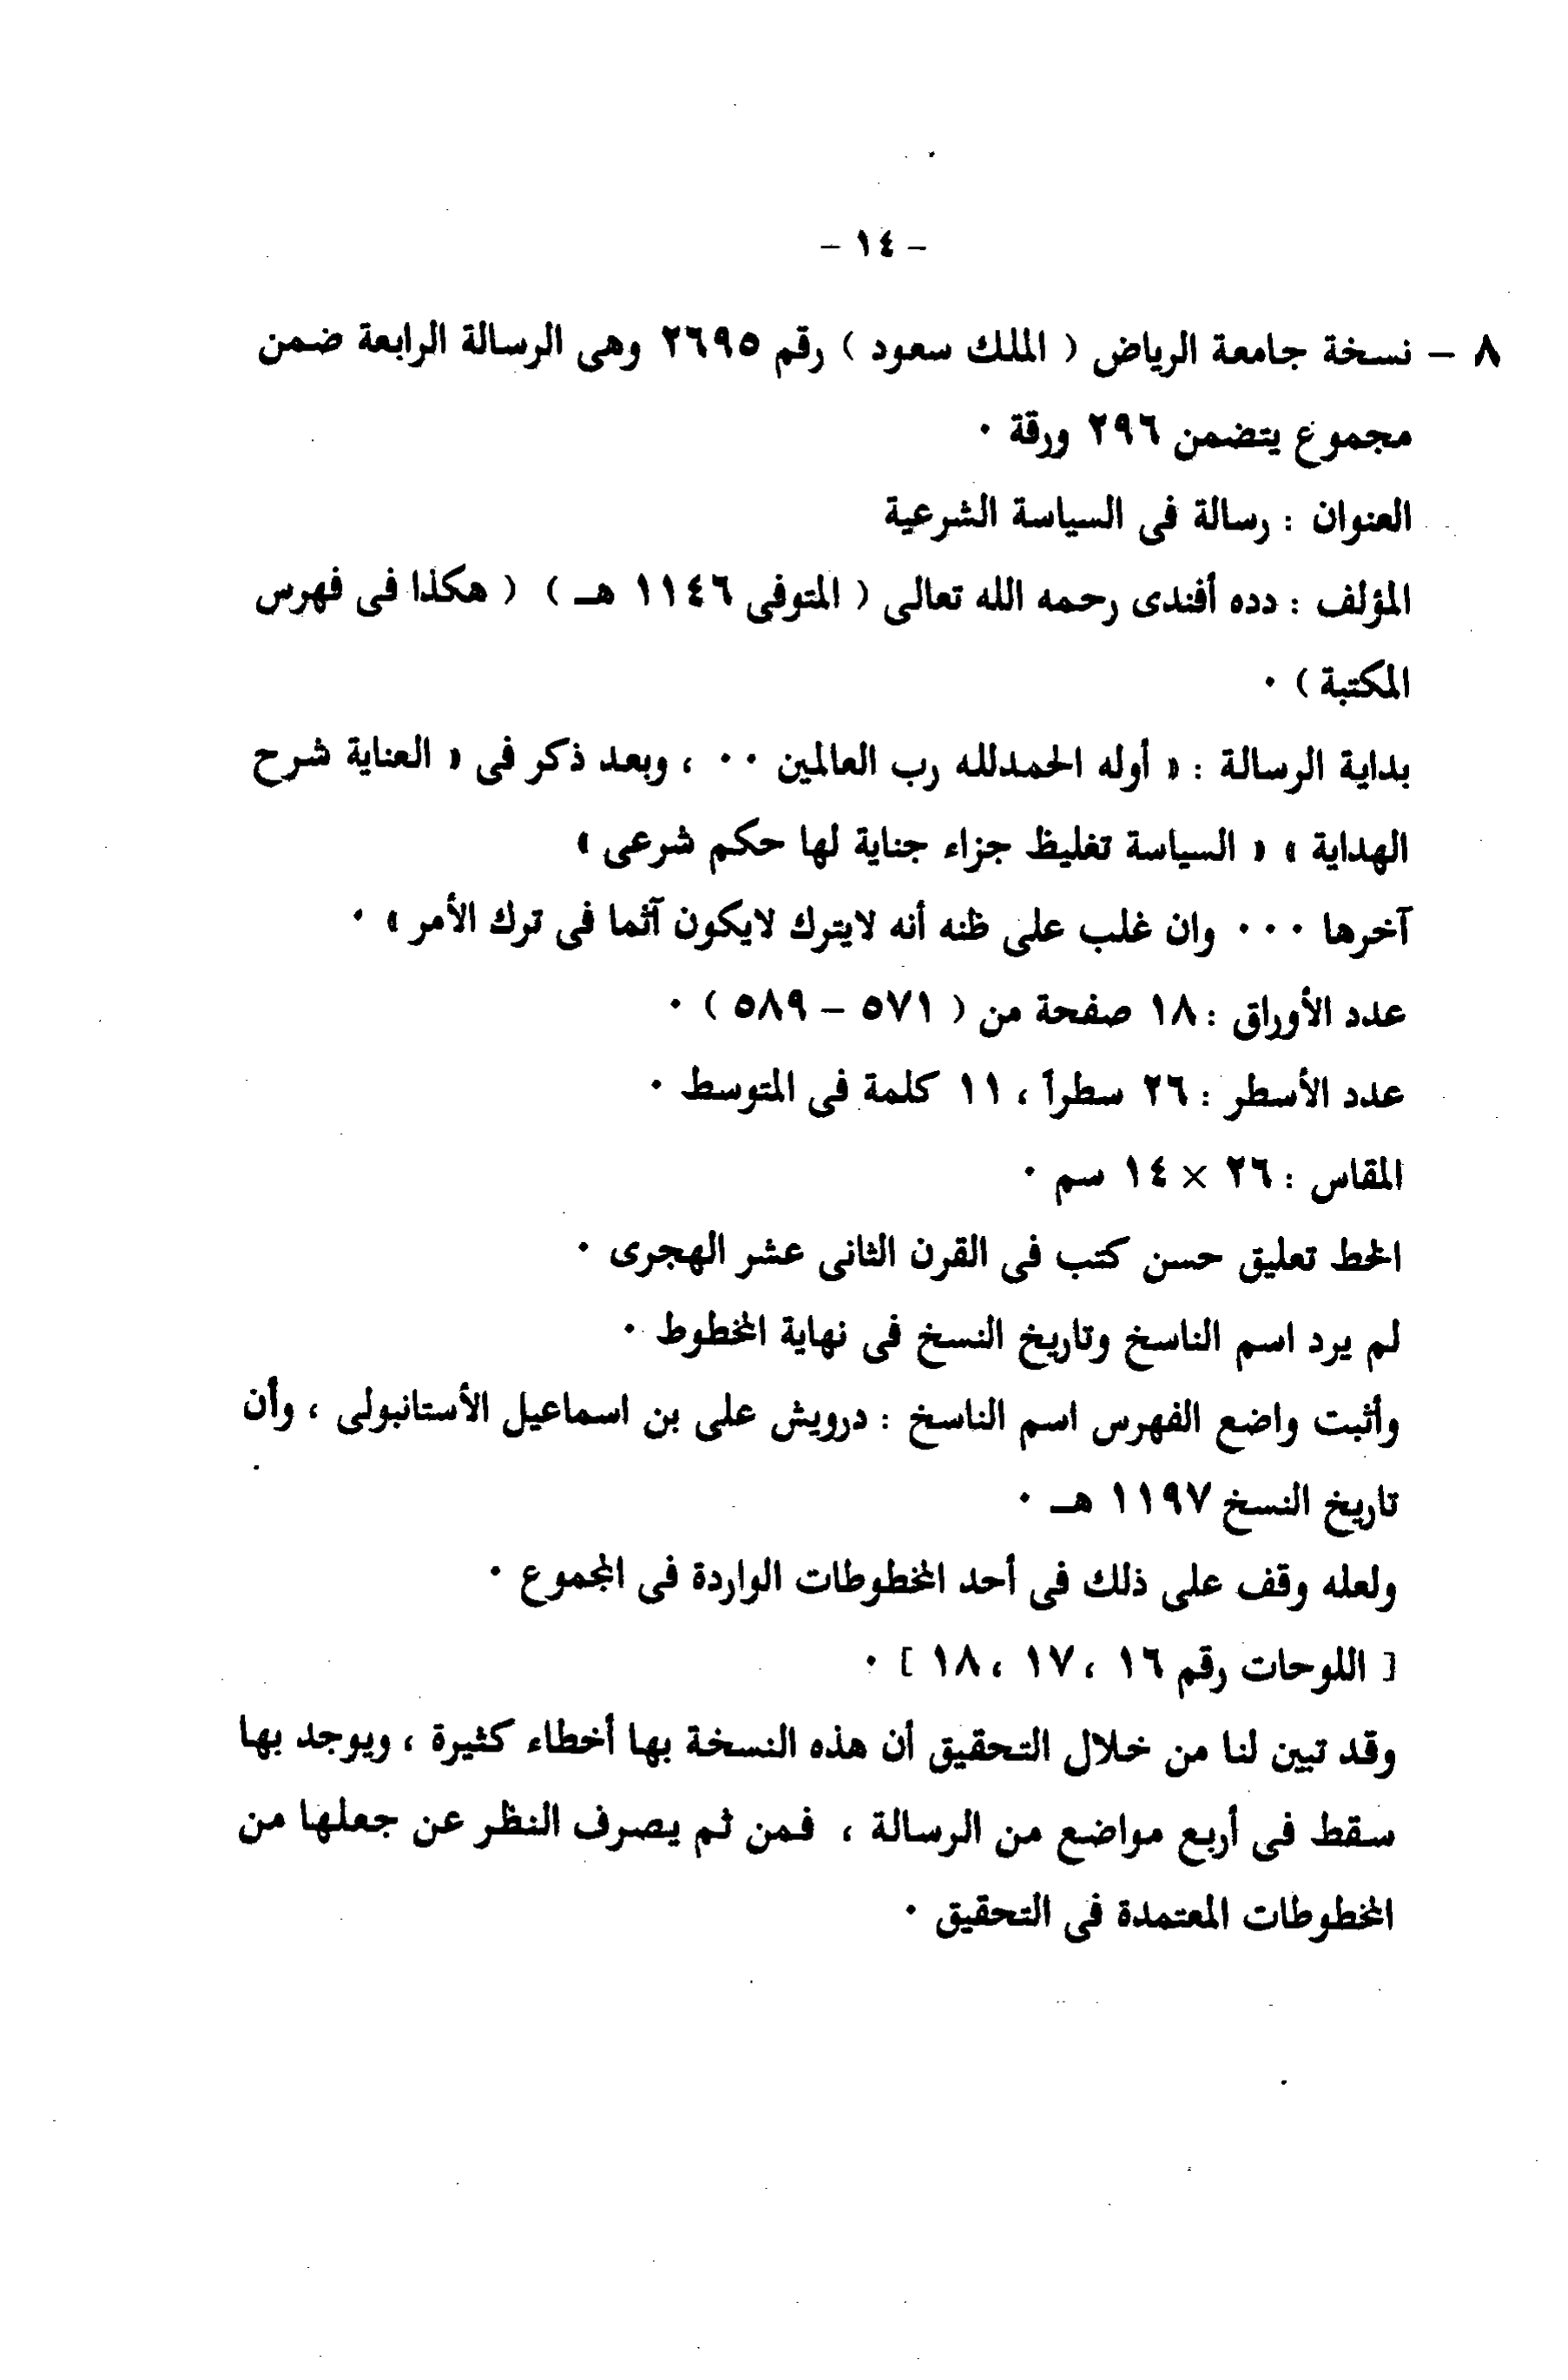 - ١٤ -
٨ - نسخة جامعة الرياض ( الملك سعود ) رقم ٢٦٩٥ وهى الرسالة الرابعة ضمن
مجموع يتضمن ٢٩٦ ورقة ٠
العنوان : رسالة فى السياسة الشرعية
المؤلف : دده أفندى رحمه الله تعالى ( المتوفى ١١٤٦ هـ ) ( هكذا فى فهرس
المكتبة ) ٠
بداية الرسالة : « أوله الحمدلله رب العالمين ٠٠ ، وبعد ذكر فى « العناية شرح
الهداية » « السياسة تغليظ جزاء جناية لها حكم شرعى »
آخرها ٠٠٠ وان غلب على ظنه أنه لايترك لايكون آثما فى ترك الأمر » ٠
عدد الأوراق : ١٨ صفحة من ( ٥٧١ - ٥٨٩ ) ٠
عدد الأسطر : ٢٦ سطراً ، ١١ كلمة فى المتوسط ٠
المقاس : ٢٦ × ١٤ سم ٠
الخط تعليق حسن كتب فى القرن الثانى عشر الهجرى ٠
لم يرد اسم الناسخ وتاريخ النسخ فى نهاية المخطوط ٠
وأثبت واضع الفهرس اسم الناسخ : درويش على بن اسماعيل الأستانبولى ، وأن
تاريخ النسخ ١١٩٧ هـ ٠
ولعله وقف على ذلك فى أحد المخطوطات الواردة فى المجموع ٠
[ اللوحات رقم ١٦ ، ١٧ ، ١٨ ] ٠
وقد تبين لنا من خلال التحقيق أن هذه النسخة بها أخطاء كثيرة ، ويوجد بها
سقط فى أربع مواضع من الرسالة ، فمن ثم يصرف النظر عن جعلها من
المخطوطات المعتمدة فى التحقيق ٠